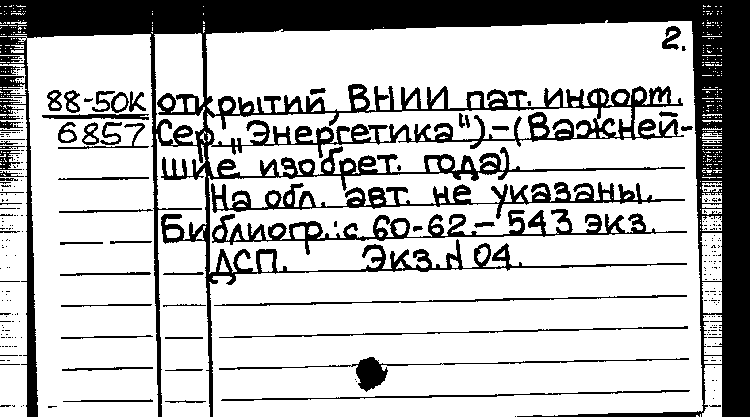 2.
88-50К открытий, ВНИИ пат. информ.
6857 Сер. „Энергетика").-(Важней-
шие изобрет. года).
На обл. авт. не указаны.
Библиогр.: с. 60-62.- 543 экз.
ДСП. Экз.N 04.